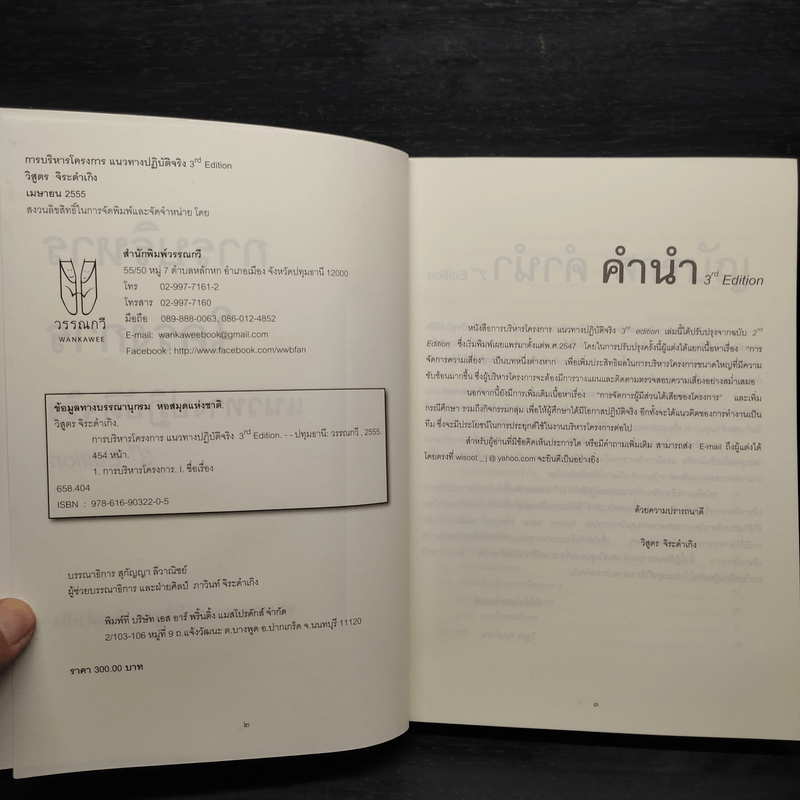 การบริหารโครงการ แนวทางปฏิบัติจริง 3rd Edition
วิสูตร จิระดำเกิง
เมษายน 2555
สงวนลิขสิทธิ์ในการจัดพิมพ์และจัดจำหน่าย โดย
วรรณกวี
WANKAWEE
สำนักพิมพ์วรรณกวี
55/50 หมู่ 7 ตำบลหลักหก อำเภอเมือง จังหวัดปทุมธานี 12000
โทร 02-997-7161-2
โทรสาร 02-997-7160
มือถือ 089-888-0063, 086-012-4852
E-mail: wankaweebook@gmail.com
Facebook : http://www.facebook.com/wwbfan
ข้อมูลทางบรรณานุกรม หอสมุดแห่งชาติ.
วิสูตร จิระดำเกิง.
การบริหารโครงการ แนวทางปฏิบัติจริง 3rd Edition. - - ปทุมธานี: วรรณกวี , 2555.
454 หน้า.
1. การบริหารโครงการ. I. ชื่อเรื่อง
658.404
ISBN : 978-616-90322-0-5
บรรณาธิการ สุกัญญา ลีวาณิชย์
ผู้ช่วยบรรณาธิการ และฝ่ายศิลป์ ภาวินท์ จิระดำเกิง
พิมพ์ที่ บริษัท เอส อาร์ พริ้นติ้ง แมสโปรดักส์ จำกัด
2/103-106 หมู่ที่ 9 ถ.แจ้งวัฒนะ ต.บางพูด อ.ปากเกร็ด จ.นนทบุรี 11120
ราคา 300.00 บาท
๒
คำนำ 3rd Edition
หนังสือการบริหารโครงการ แนวทางปฏิบัติจริง 3rd edition เล่มนี้ได้ปรับปรุงจากฉบับ 2nd
Edition ซึ่งเริ่มพิมพ์เผยแพร่มาตั้งแต่พ.ศ.2547 โดยในการปรับปรุงครั้งนี้ผู้แต่งได้แยกเนื้อหาเรื่อง "การ
จัดการความเสี่ยง" เป็นบทหนึ่งต่างหาก เพื่อเพิ่มประสิทธิผลในการบริหารโครงการขนาดใหญ่ที่มีความ
ซับซ้อนมากขึ้น ซึ่งผู้บริหารโครงการจะต้องมีการวางแผนและติดตามตรวจสอบความเสี่ยงอย่างสม่ำเสมอ
นอกจากนี้ยังมีการเพิ่มเติมเนื้อหาเรื่อง "การจัดการผู้มีส่วนได้เสียของโครงการ" และเพิ่ม
กรณีศึกษา รวมถึงกิจกรรมกลุ่ม เพื่อให้ผู้ศึกษาได้มีโอกาสปฏิบัติจริง อีกทั้งจะได้แนวคิดของการทำงานเป็น
ทีม ซึ่งจะมีประโยชน์ในการประยุกต์ใช้ในงานบริหารโครงการต่อไป
สำหรับผู้อ่านที่มีข้อคิดเห็นประการใด หรือมีคำถามเพิ่มเติม สามารถส่ง E-mail ถึงผู้แต่งได้
โดยตรงที่ wisoot _ j @ yahoo.com จะยินดีเป็นอย่างยิ่ง
ด้วยความปรารถนาดี
วิสูตร จิระดำเกิง
๓